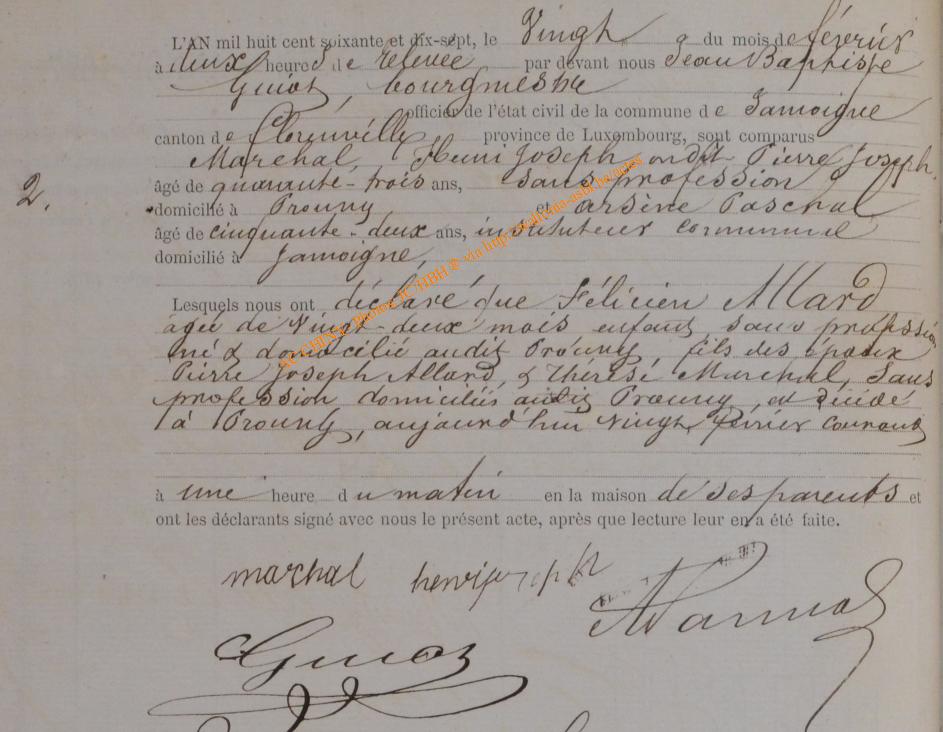 L'AN mil huit cent soixante et dix-sept, le Vingt du mois de février
à deux heures de relevée par devant nous Jean Baptiste
Guiot, bourgmestre
officier de l'état civil de la commune de Jamoigne
canton de Florenville province de Luxembourg, sont comparus
Marchal, Henri Joseph, on dit Pierre Joseph,
âgé de quarante-trois ans, sans profession
2.
domicilié à Prouny et Arsène Paschal
âgé de cinquante-deux ans, instituteur communal
domicilié à Jamoigne,
Lesquels nous ont déclaré que Félicien Allard
âgé de Vingt-deux mois enfant, sans professi
né & domicilié audit Prouny, fils des époux
Pierre Joseph Allard, & Thérèse Marchal, Sans
profession domiciliés audit Prouny, est décédé
à Prouny, aujourd'hui vingt février courant
à une heure du matin en la maison de ses parents et
ont les déclarants signé avec nous le présent acte, après que lecture leur en a été faite.
marchal henri joseph
Guiot
via http://